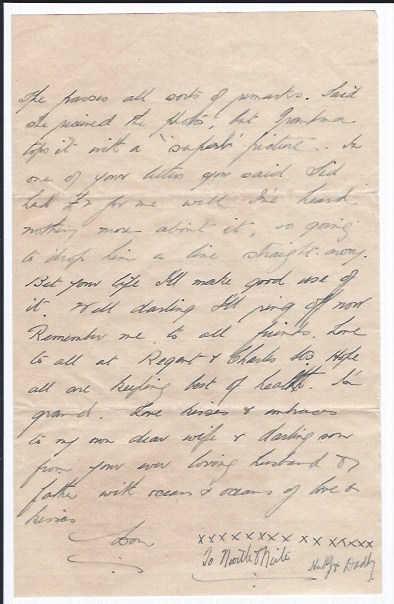 She passes all sorts of remarks. Said
she received the photo, but Grandma
tops it with a "superb" picture. In
one of your letters you said Sid
had £2 for me well I've heard
nothing more about it, so going
to drop him a line straight away.
Bet your life I'll make good use of
it. Well darling I'll ring off now
Remember me to all friends. Love
to all at Regent & Charles Sts. Hope
all are keeping best of health. I'm
grand. Love kisses & embraces
to my own dear wife & darling son
from your ever loving husband &
father with oceans & oceans of love &
kisses
xxxxxxxx x x xxxxx
To & Hubby & Daddy